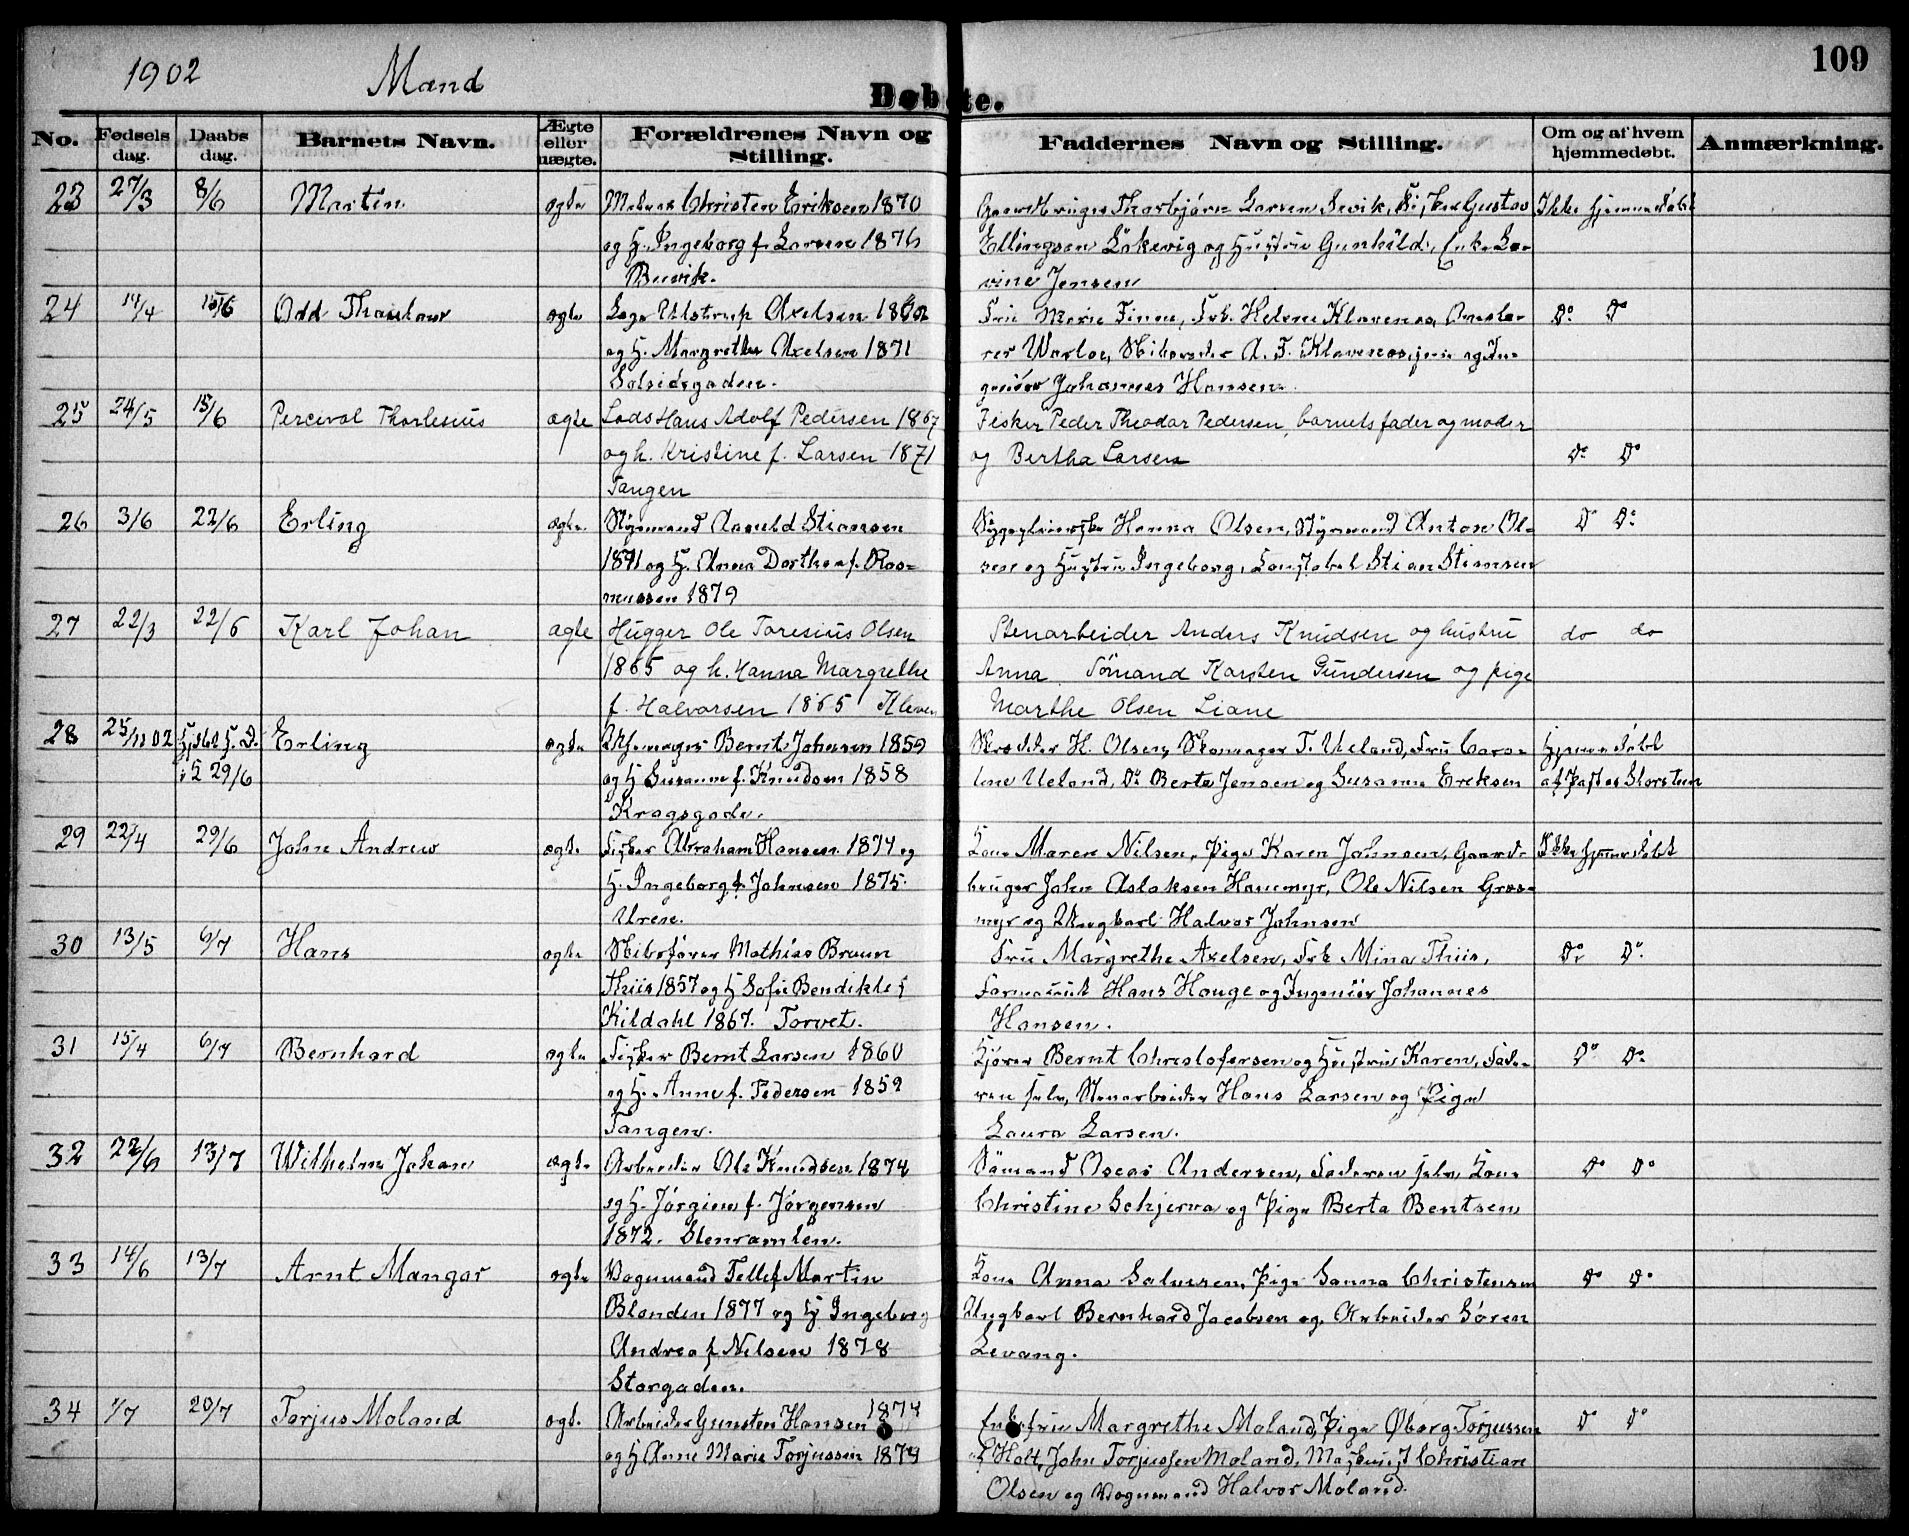 109
1902 Mænd
Døbte.
No. Fødsels dag. Daabs dag. Barnets Navn. Ægte eller uægte. Forældrenes Navn og Stilling. Faddernes Navn og Stilling. Om og af hvem hjemmedøbt. Anmærkning.
23 27/3 8/6 Martin ægte Christen Eriksen 1870 Thorbjørn Larsen Gustav Ikke hjemmedøbt
og H. Ingeborg f. Larsen 1876 Ellingsen og Hustru Gunhild, Enke La-
Buvik. vine Jensen
24 14/4 15/6 Odd Thaulow ægte Ulstrup Axelsen Fru Marie Finne, Frk. Helene Klavenes, Do Do
og H. Margrethe Axelsen 1871 rer Warloe, Skibsreder A. F. Klavenes jun. og In-
Solsidegaden. geniør Johannes Hansen.
25 24/5 15/6 Percival Tharlesius ægte Lods Hans Adolf Pedersen 1867 Fisker Peder Theodor Pedersen, barnets fader og moder
og h. Kristine f. Larsen 1871 og Bertha Larsen Do Do
Tangen
26 3/6 22/6 Erling ægte. Styrmand Aanuld Stiansen Hanna Olsen, Styrmand Anton Ol-
Do Do
1871 og H. Anna Dorthea f. Ras- sen og Hustru Ingeborg, Konstabel Stian Stiansen
mussen 1879
27 22/3 22/6 Karl Johan ægte Hugger Ole Taresius Olsen Stenarbeider Anders Knudsen og hustru do do
1865 og h. Hanna Margrethe Anna, Sömand Karsten Gundersen og pige
f. Halvorsen 1865 Kleven Marthe Olsen Liane
28 25/11 02 Hjdbt. Erling ægte Bernt Johnsen 1859 Skrædder H. Olsen, Skomager T. Ueland, Fru Caro- Hjemmedøbt
29/6 og H Susanne f. Knudsen 1858 line Ueland, Do Berta Jensen og Susanne Ereksen af Pastor Storsteen
Kragsgade.
29 22/4 29/6 John Andrew ægte Fisker Abraham Hansen 1874 og Kone Maren Nilsen, Pige Karen Johnsen, Gaard- Ikke hjemmedøbt
H. Ingeborg f. Johnsen 1875. bruger John Aslaksen Hanemyr, Ole Nilsen Græs-
Uren. myr og Ungkarl Halvor Johnsen
30 13/5 6/7 Hans ægte Skibsfører Mathias Bruun Fru Margrethe Axelsen, Frk Mina Thiis, Do Do
Thiis 1857 og H Sofie Bendikte f Farmaceut Hans Houge og Ingeniör Johannes
Kildahl 1867. Torvet. Hansen.
31 15/4 6/7 Bernhard ægte Fisker Bernt Larsen 1860 Kjører Bernt Christofersen og Hustru Karen, Fade- Do Do
og H. Anne f. Pedersen 1859 ren selv, Stenarbeider Hans Larsen og Pige
Tangen. Laura Larsen.
32 22/6 13/7 Wilhelm Johan ægte Arbeider Ole Knudsen 1874 Sömand Oscar Andersen, Faderen selv, Kone Do Do
og H. Jörgine f. Jörgensen Christine Schjerva og Pige Berta Bentsen
1872.
33 14/6 13/7 Arnt Mangor ægte Vognmand Tellef Martin Kone Anna Salvesen, Pige Sanna Christensen Do Do
Blonden 1877 og H Ingeborg Ungkarl Bernhard Jacobsen og Arbeider Sören
Andrea f Nilsen 1878 Levang.
Storgaden.
34 1/7 20/7 Torjus Moland ægte Arbeider Gunsten Hansen 1874 Enkefru Margrethe Moland, Pige Øborg Torjussen Do Do
og H Anne Marie Torjussen 1879 Holt, John Torjussen Moland, Maskinist Christian
Olsen og Vognmand Halvor Moland.